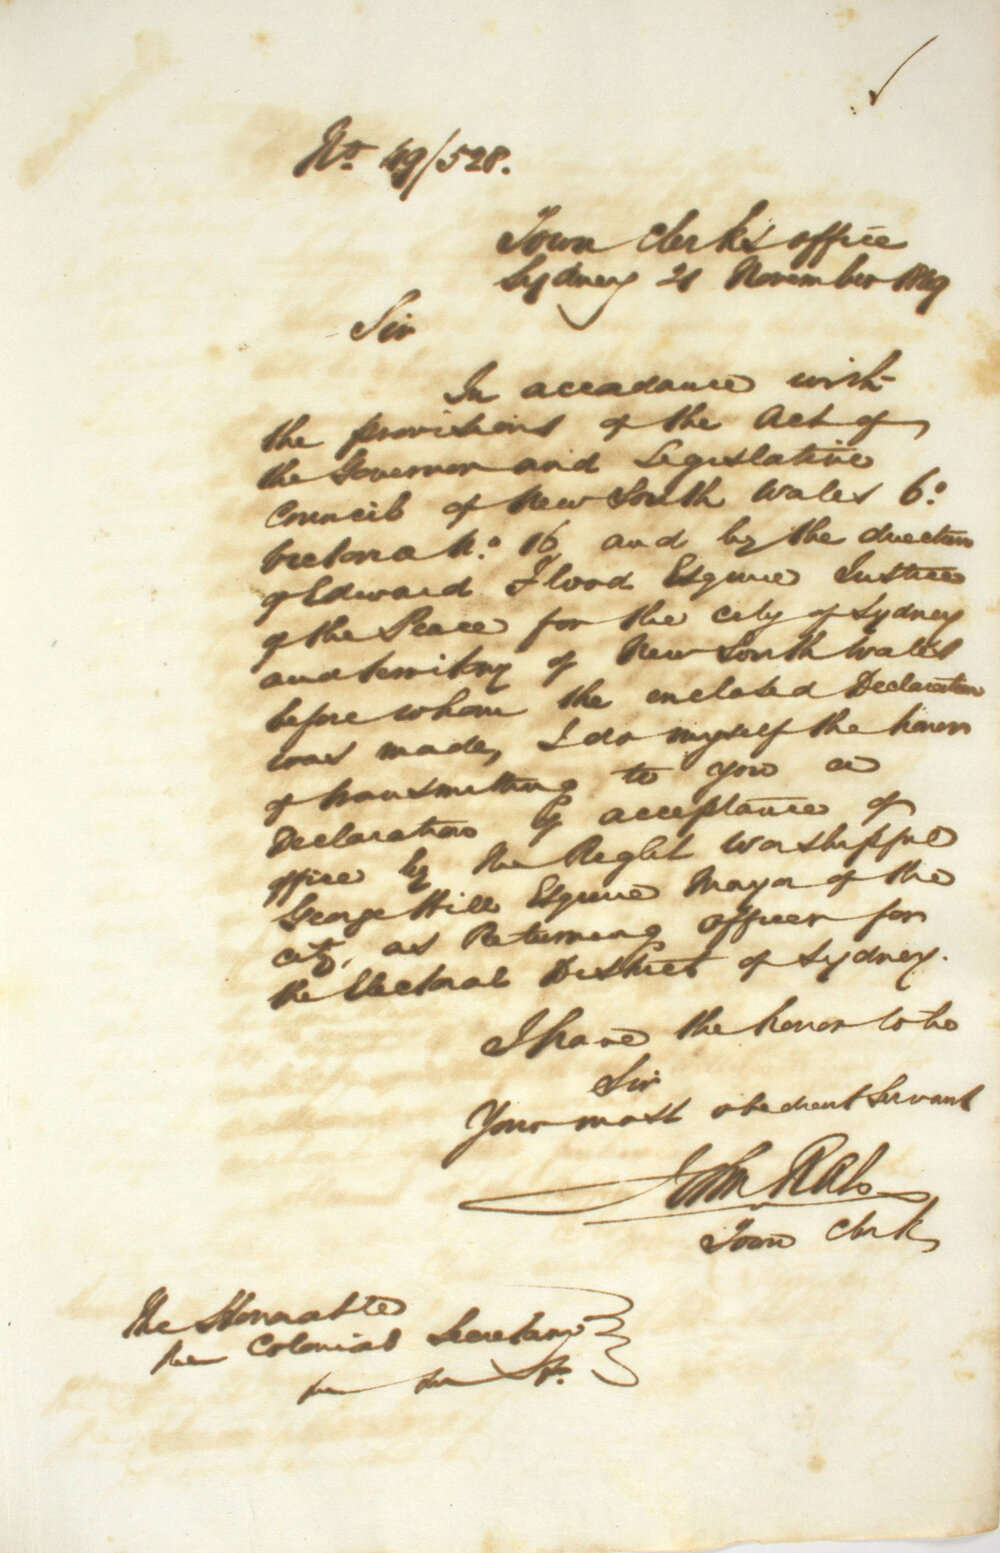 No 49/528.
Town Clerks office
Sydney 21 November 1849
Sir
In accordance with
the provisions of the Act of
the Governor and Legislative
Council of New South Wales 6o
Victoria No. 16 and by the direction
of Edward Flood Esquire Justice
of the Peace for the city of Sydney
and territory of New South Wales
before whom the enclosed Declaration
was made, I do myself the honor
of transmitting to you a
Declaration of acceptance of
office by the Right Worshipful
George Hill Esquire Mayor of the
city, as Returning officer for
the Electoral District of Sydney.
I have the honor to be
Sir
Your most obedient Servant
John Rae
Town Clerk
The Honorable
The Colonial Secretary